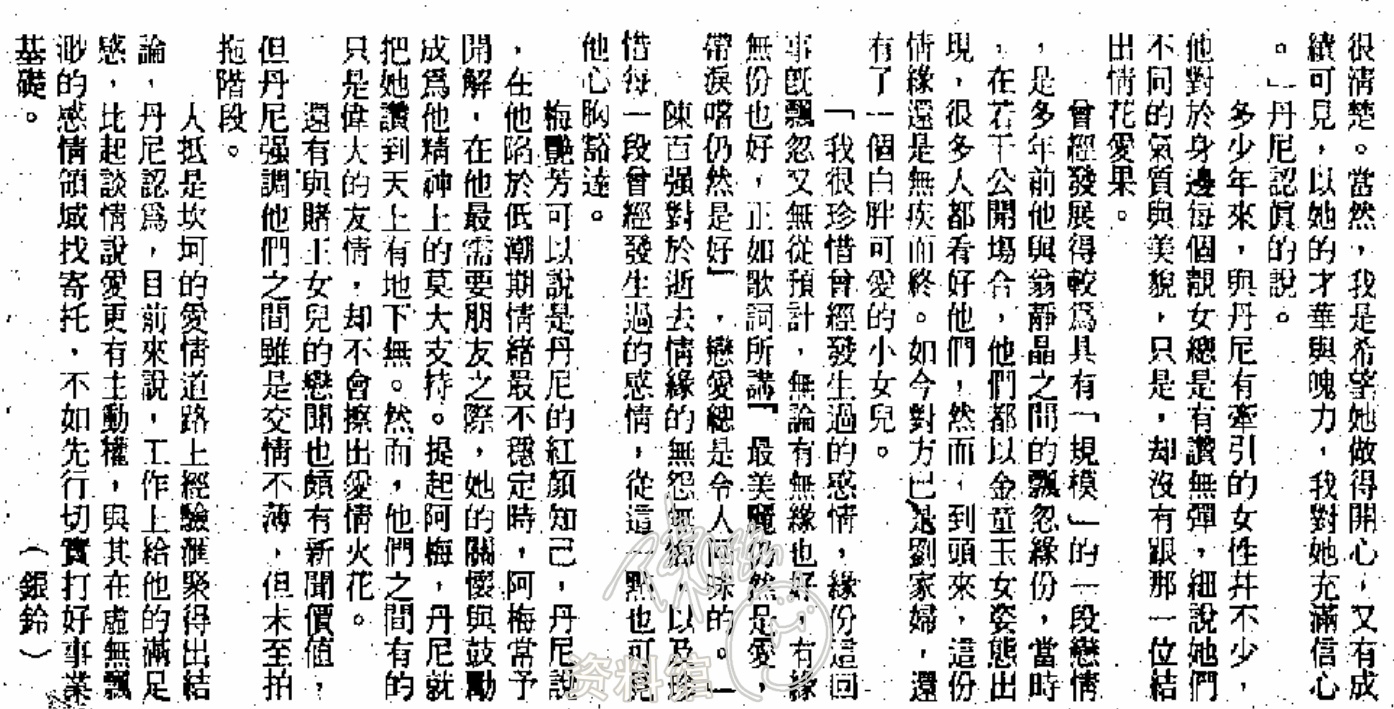 很清楚。當然，我是希望她做得開心，又有成
績可見，以她的才華與魄力，我對她充滿信心
。」丹尼認眞的說。
多少年來，與丹尼有牽引的女性幷不少，
他對於身邊每個靚女總是有讚無彈，細說她們
不同的氣質與美貌，只是，却沒有跟那一位結
出情花愛果。
曾經發展得較爲具有「規模」的一段戀情
，是多年前他與翁靜晶之間的飄忽緣份，當時
，在若干公開場合，他們都以金童玉女姿態出
現，很多人都看好他們，然而，到頭來，這份
情緣還是無疾而終。如今對方已是劉家婦，還
有了一個白胖可愛的小女兒。
「我很珍惜曾經發生過的感情，緣份這回
事旣飄忽又無從預計，無論有無緣也好，有緣
無份也好，正如歌詞所講『最美麗仍然是愛，
帶淚嚐仍然是好』，戀愛總是令人回味的。」
陳百强對於逝去情緣的無怨無悔，以及珍
惜每一段曾經發生過的感情，從這一點也可見
他心胸豁達。
梅艷芳可以說是丹尼的紅顏知己，丹尼說
，在他陷於低潮期情緒最不穩定時，阿梅常予
開解，在他最需要朋友之際，她的關懷與鼓勵
成爲他精神上的莫大支持。提起阿梅，丹尼就
把她讚到天上有地下無。然而，他們之間有的
只是偉大的友情，却不會擦出愛情火花。
還有與賭王女兒的戀聞也頗有新聞價值，
但丹尼强調他們之間雖是交情不薄，但未至拍
拖階段。
人抵是坎坷的愛情道路上經驗滙聚得出結
論，丹尼認爲，目前來說，工作上給他的滿足
感，比起談情說愛更有主動權，與其在虛無飄
渺的感情領域找寄托，不如先行切實打好事業
基礎。
（銀鈴）
资料管